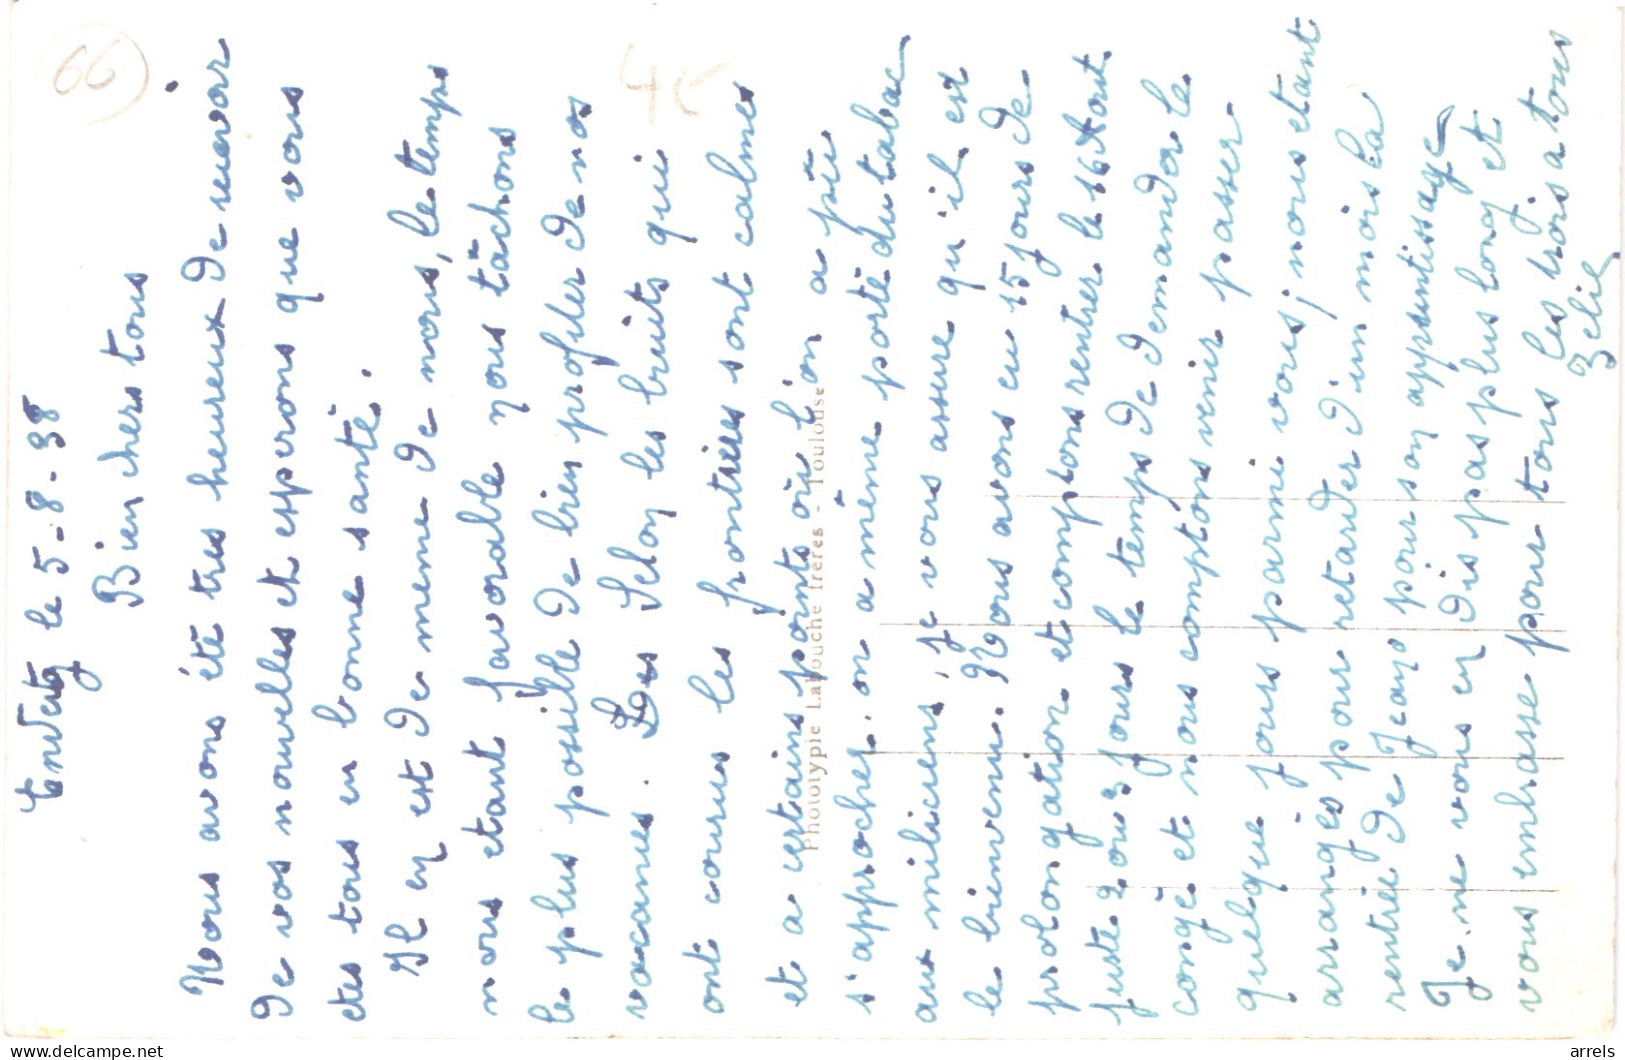 Endertg le 5-8-38
Bien chers tous
Nous avons été tres heureux de ravoir
de vos nouvelles et esperons que vous
etes tous en bonne santé.
Il en est de meme de nous, le temps
nous etant favorable nous tâchons
le plus possible de bien profiter de nos
vacances. Selon les bruits qui
ont courus les frontiéres sont calmes
et a certains points où l'on a pû
s'approcher on a même porté du tabac
aux miliciens, je vous assure qu'il est
le bienvenu. Nous avons eu 15 jours de
prolongation et comptons rentrer le 16 Aout
juste 2 ou 3 jours le temps de demander le
congé et nous comptons venir passer
quelque jours parmi vous; nous etant
arrangés pour retarder d'un mois la
rentrée de Jeano pour son apprentissage
Je ne vous en dis pas plus long et
vous embrasse pour tous les trois a tous
Zelie
Phototypie Labouche frères - Toulouse
66
4€
arrels